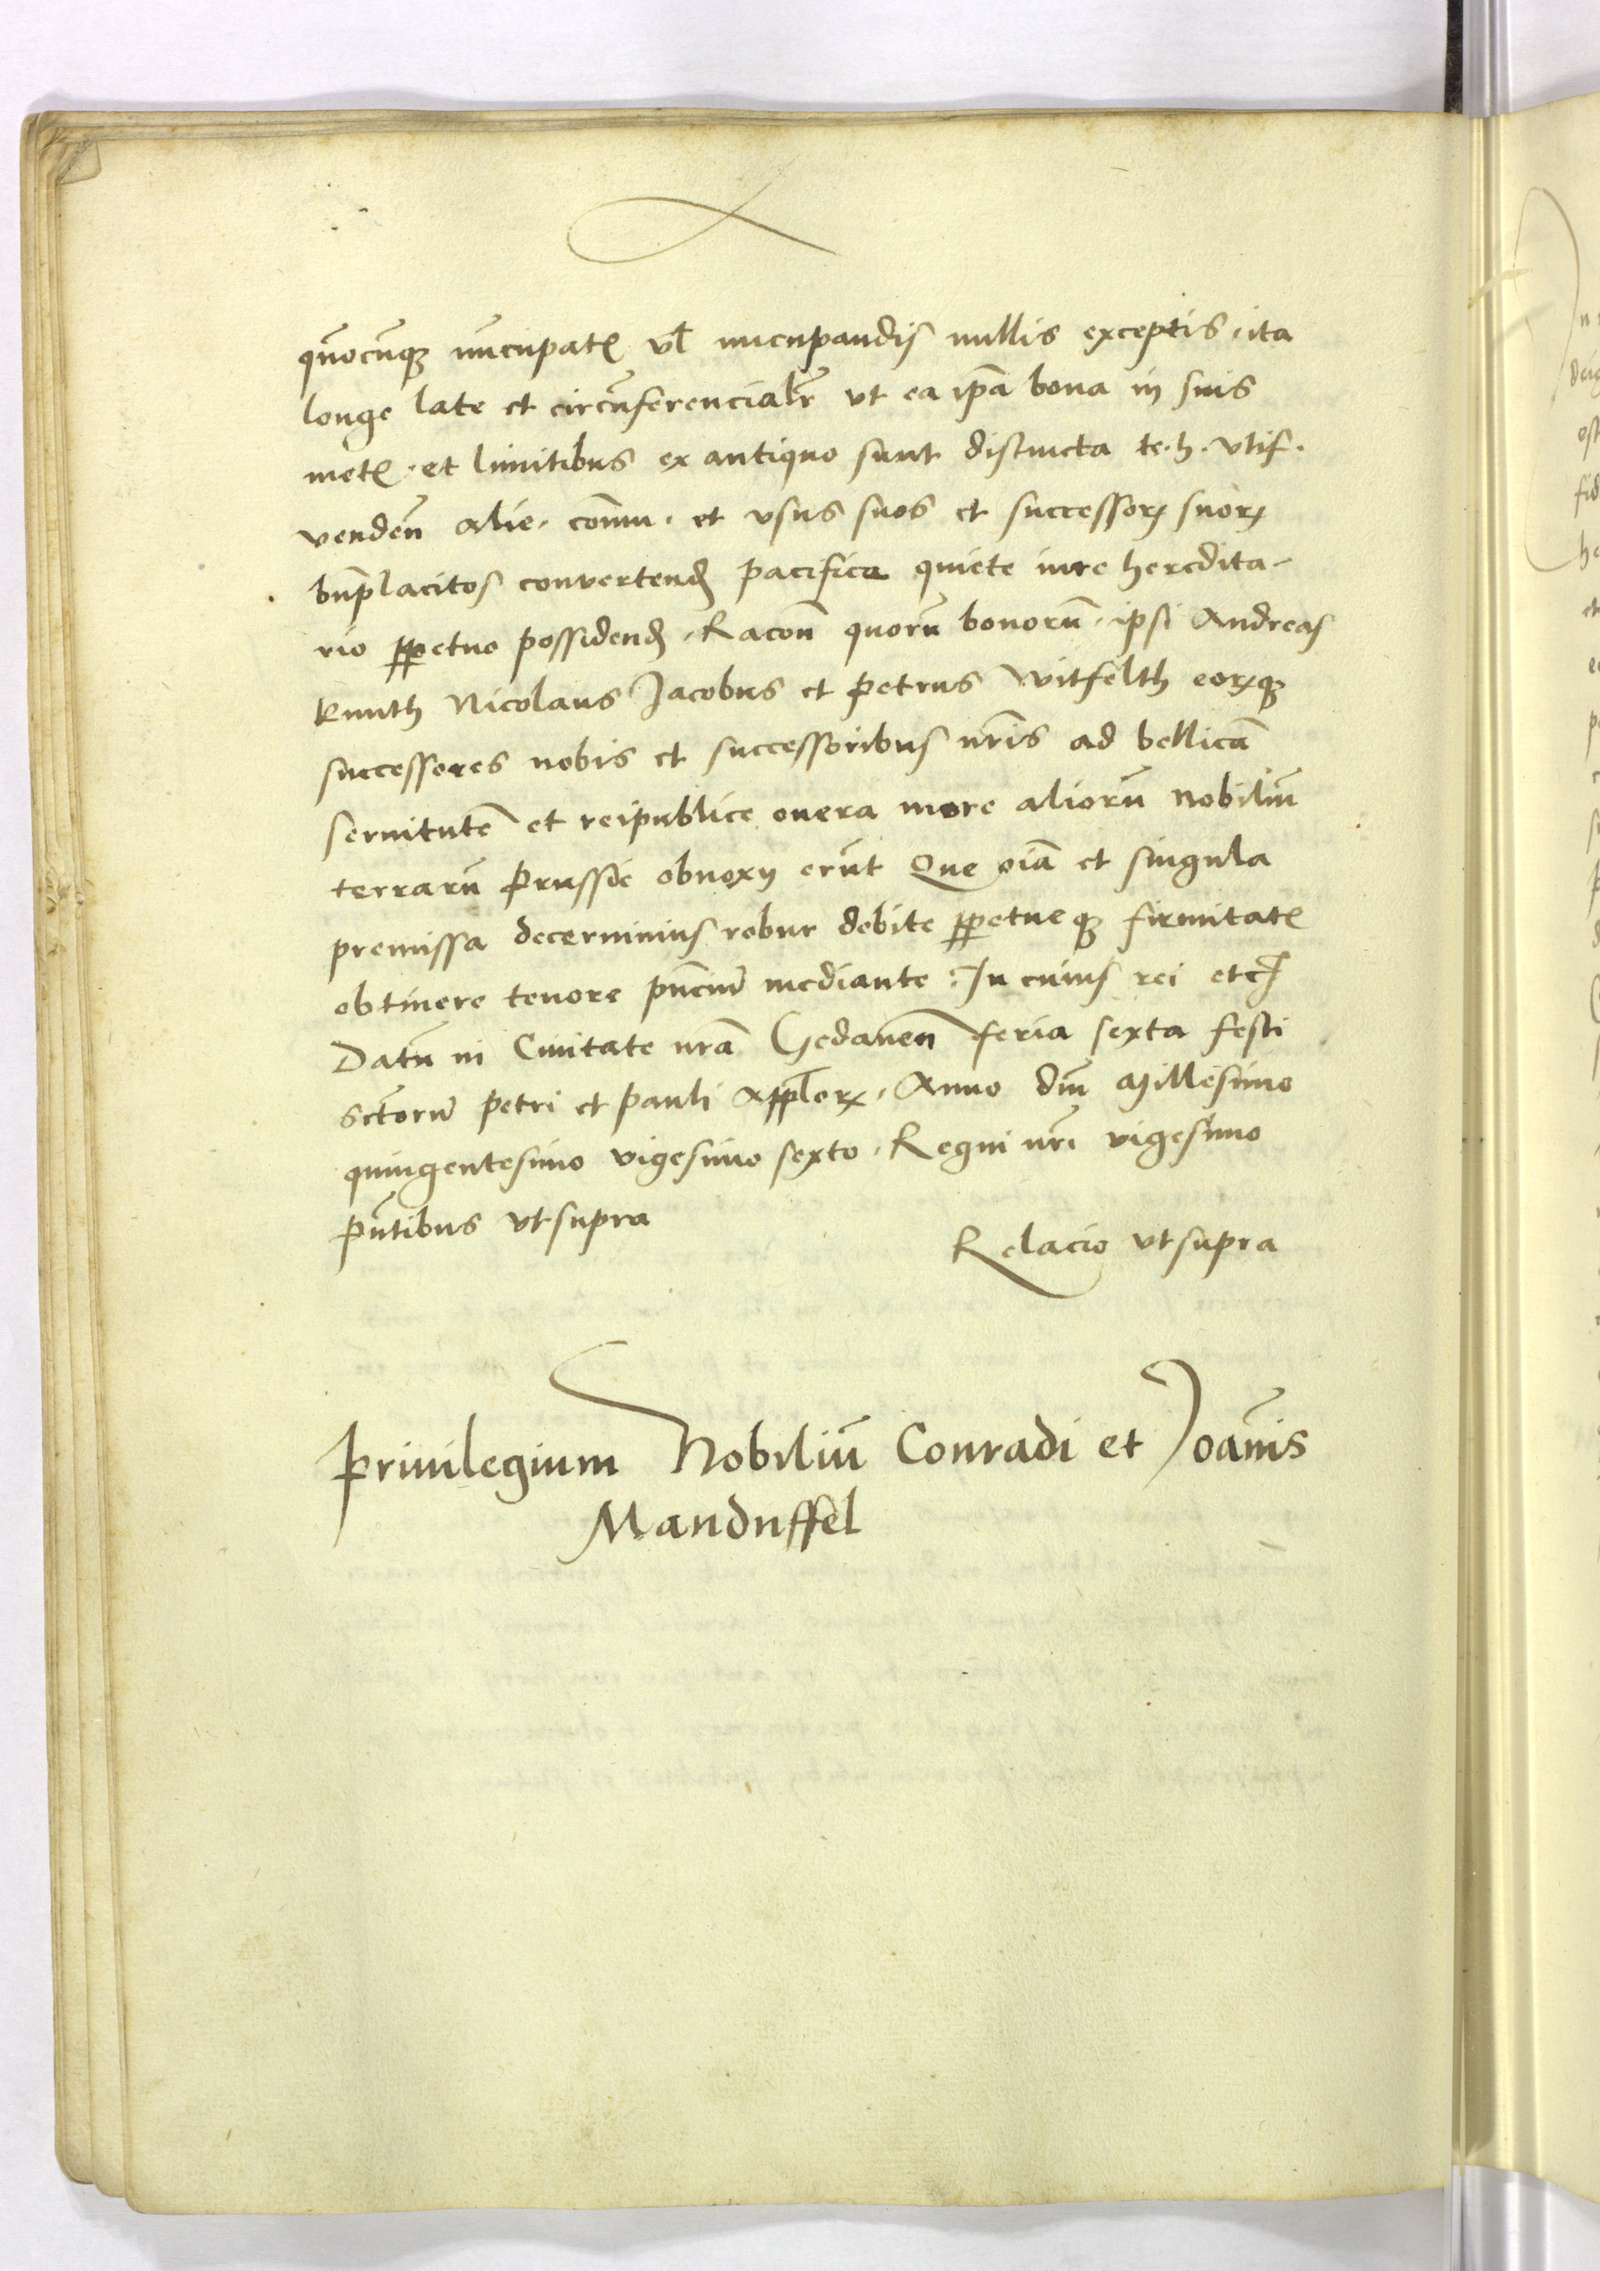 quocu̅q₃ nu̅cupatꝭ vl̅ nucupandis nullis exceptis, ita
longe late et circu̅ferencialr̅ ut ea ip̅a bona in suis
metꝭ. et limitibus ex antiquo sunt distincta te. h. vtif.
venden̅ alie. com̅u. et vsus suos et successorꝝ suorꝝ
bn̅placitos convertend̅ pacifica quiete iure heredita-
rio ꝑpetuo possidend̅. Racon̅ quoru̅ bonoru̅. ipsi Andreas
kunth Nicolaus Jacobus et Petrus Witfelth eorꝝq₃
successores nobis et successoribus nr̅is ad bellica̅
seruitute̅ et reipublice onera more alioru̅ Nobiliu̅
terraru̅ Prussie obnoxij eru̅t Que oi̅a et singula
premissa decernimus robur debite ꝑpetueq₃ firmitatꝭ
obtinere tenore pn̅ciu̅ mediante: In cuius rei etc
Datu̅ in Ciuitate nr̅a Gedanen̅ feria sexta festi
Sctoru̅ Petri et Pauli Appl̅orꝝ. Anno dni̅ Millesimo
quingentesimo vigesimo sexto. Regni nr̅i vigesimo
pn̅tibus vt supra
Relacio vt supra
Priuilegium Nobiliu̅ Conradi et Joan̅is
Manduffel